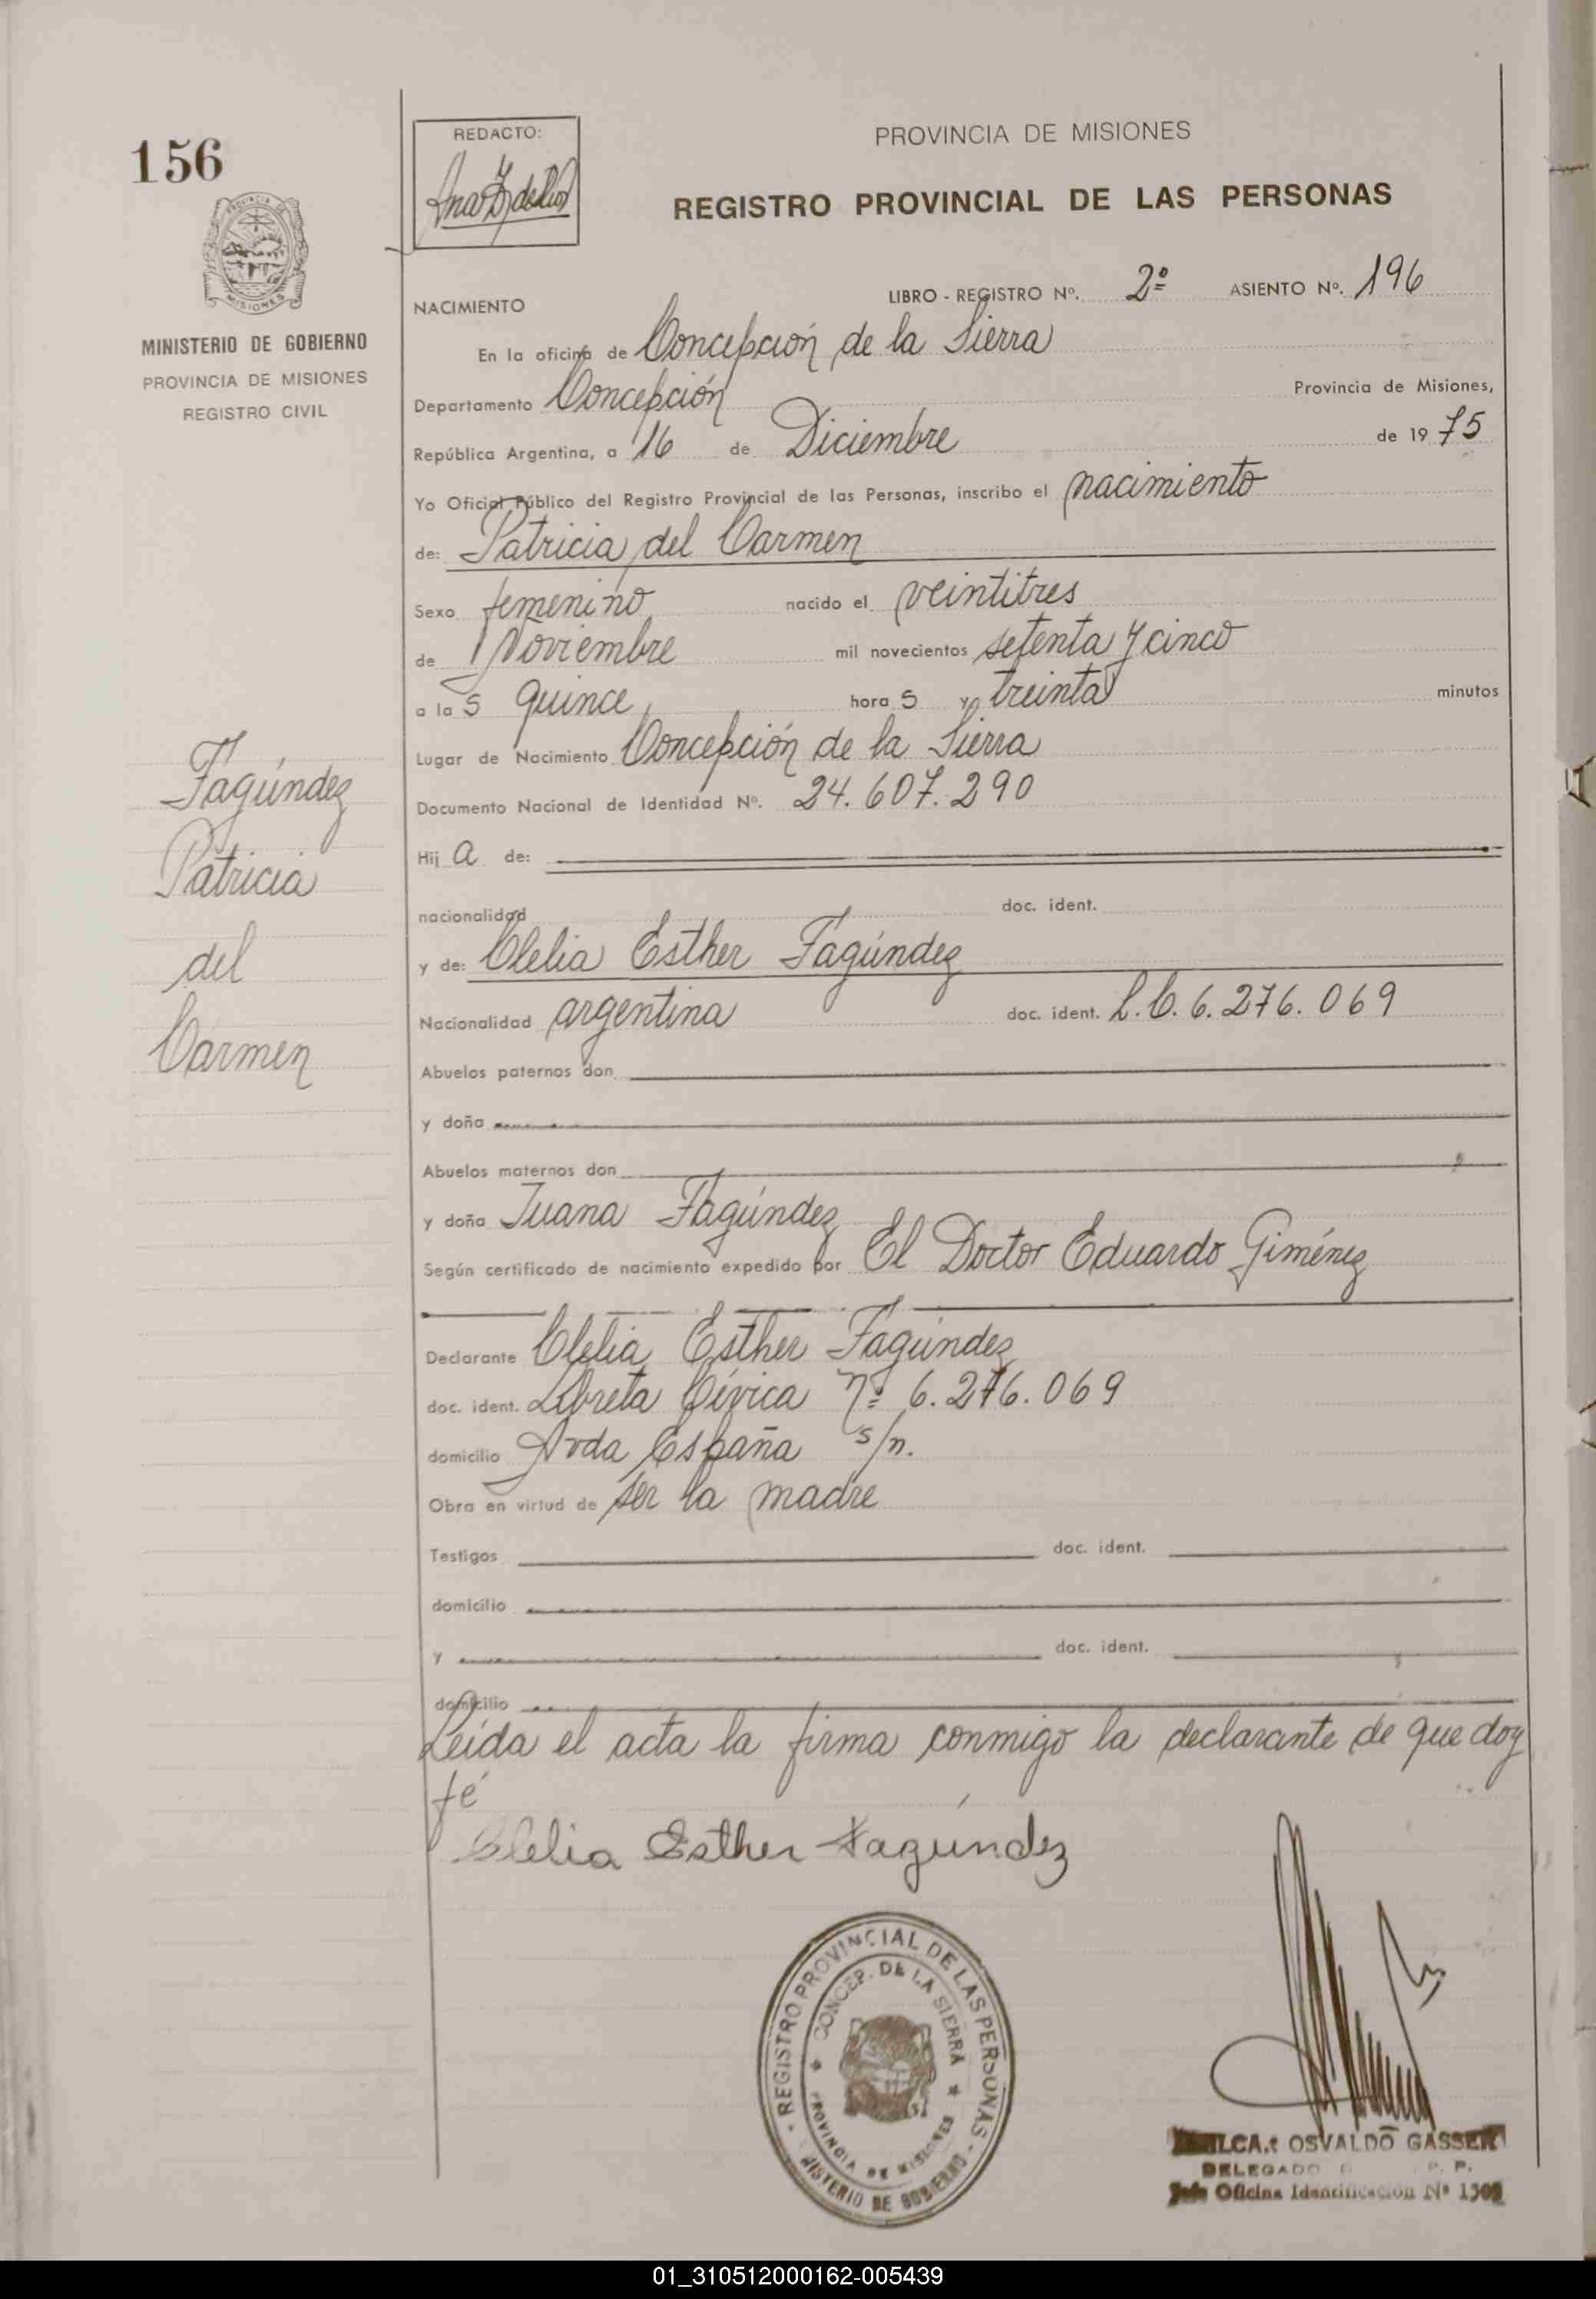 156
REDACTO:
PROVINCIA DE MISIONES
REGISTRO PROVINCIAL DE LAS PERSONAS
MISIONES
MINISTERIO DE GOBIERNO
PROVINCIA DE MISIONES
REGISTRO CIVIL
NACIMIENTO
LIBRO - REGISTRO Nº. 2º ASIENTO Nº. 196
En la oficina de Concepción de la Sierra
Departamento Concepción Provincia de Misiones,
República Argentina, a 16 de Diciembre de 1975
Yo Oficial Público del Registro Provincial de las Personas, inscribo el nacimiento
de: Patricia del Carmen
Sexo femenino nacido el veintitres
de Noviembre mil novecientos setenta y cinco
a las quince horas y treinta minutos
Lugar de Nacimiento Concepción de la Sierra
Documento Nacional de Identidad Nº. 24.607.290
Hija de:
nacionalidad doc. ident.
y de: Clelia Esther Fagúndez
Nacionalidad argentina doc. ident. L.C. 6.276.069
Abuelos paternos don
y doña
Abuelos maternos don
y doña Juana Fagúndez
Según certificado de nacimiento expedido por El Doctor Eduardo Giménez
Declarante Clelia Esther Fagúndez
doc. ident. Libreta Cívica Nº 6.276.069
domicilio Avda España s/n.
Obra en virtud de ser la madre
Testigos doc. ident.
domicilio
y doc. ident.
domicilio
Leída el acta la firma conmigo la declarante de que doy
fé
Clelia Esther Fagúndez
Fagúndez
Patricia
del
Carmen
REGISTRO PROVINCIAL DE LAS PERSONAS
CONCEP. DE LA SIERRA
PROVINCIA DE MISIONES
MINISTERIO DE GOBIERNO
OSVALDO GASSER
DELEGADO
Jefe Oficina Identificación Nº
01_310512000162-005439